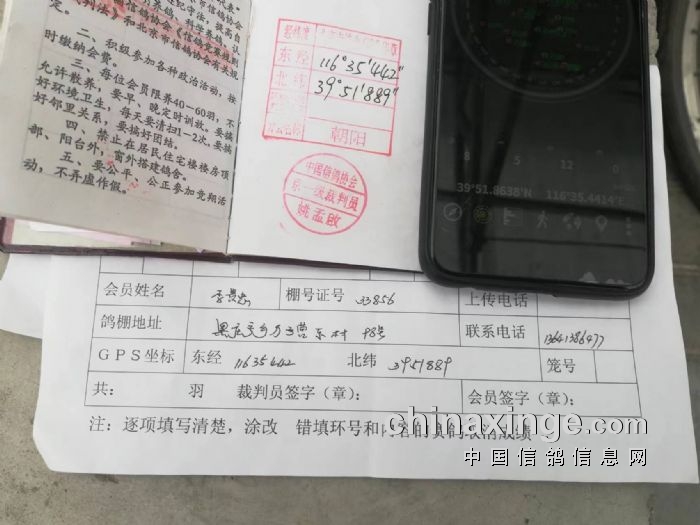 信鸽协会
定。
二、积极参加各种政治活动，按
时缴纳会费。
三、每位会员限养40—60羽，不
允许散养，要早、晚定时训放。要搞
好环境卫生，每天要清扫1-2次。要搞
好邻里关系，要搞好团结。
四、禁止在居民住宅楼楼房顶
部、阳台外，窗外搭建鸽舍。
五、要公平、公正参加竞翔活
动，不弄虚作假。
东经 116°35'442"
北纬 39°51'889"
朝阳
中国信鸽协会
一级裁判员
姚孟啟
8 5 12 0
39°51.8638'N 116°35.4414'E
会员姓名 棚号证号 33856 上传电话
鸽棚地址 东村 98号 联系电话 13641386977
GPS坐标 东经 11635442 北纬 3951889 笼号
共： 羽 裁判员签字（章）： 会员签字（章）：
注：逐项填写清楚，涂改 错填环号和
chinaxinge.com
中国信鸽信息网